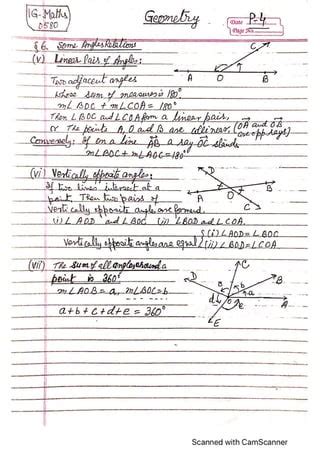 IG-Maths
0580
Geometry
Date P.4
Page No.
§6. Some Angles Relations
(v) Linear Pair of Angles:
Two adjacent angles
whose sum of measures is 180°
m∠BOC + m∠COA = 180°
Then ∠BOC and ∠COA form a linear pair,
or The points A, O and B are collinear. (OA and OB are opp rays)
Conversely: If on a line AB a ray OC stands
m∠BOC + m∠AOC = 180°
C
A O B
(vi) Vertically opposite angles:
If two lines intersect at a
point, Then two pairs of
vertically opposite angles are formed.
(i) ∠AOD and ∠BOC (ii) ∠BOD and ∠COA.
Vertically opposite angles are equal { (i) ∠AOD = ∠BOC
(ii) ∠BOD = ∠COA
D
A O B
C
(vii) The sum of all angles around a
point is 360°
m∠AOB = a, m∠BOC = b
a+b+c+d+e = 360°
C
D B
c b a
d O e A
E
Scanned with CamScanner